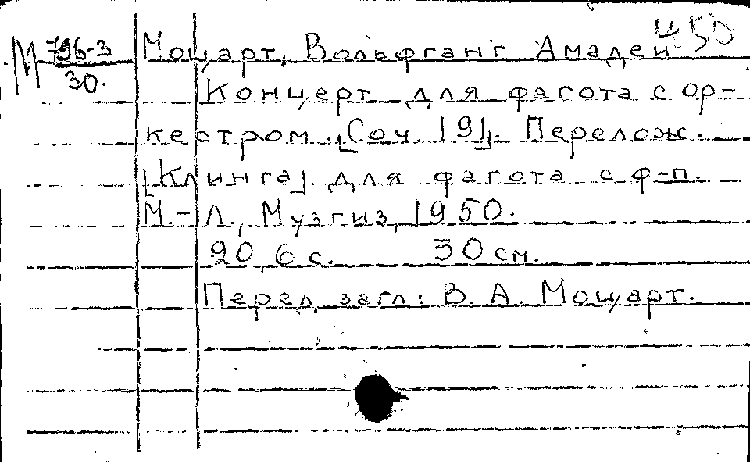 М 796-3
30.
450
Моцарт, Вольфганг Амадей
Концерт для фагота с ор-
кестром [Соч. 191]. Перелож.
[Клинга] для фагота с ф-п.
М.-Л., Музгиз, 1950.
20, 6 с. 30 см.
Перед загл.: В. А. Моцарт.